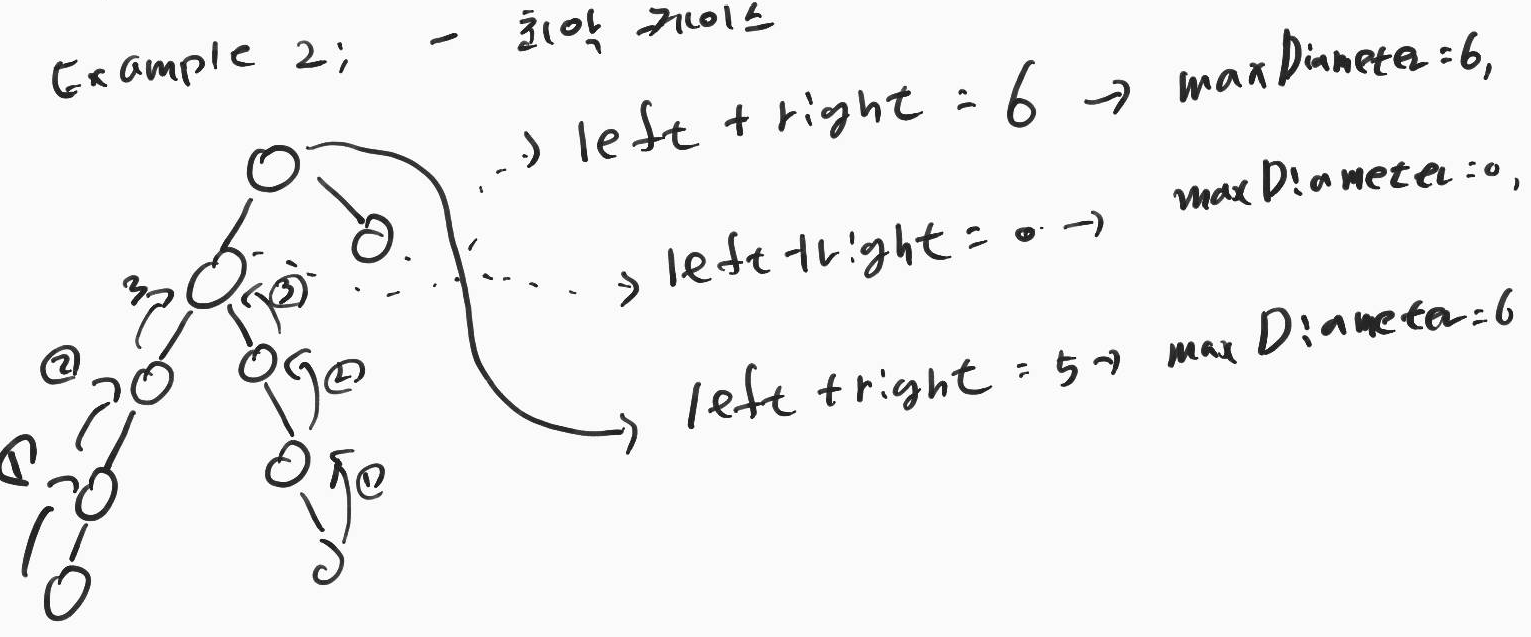 Example 2; - 최악 케이스
→ left + right = 6 → maxDiameter = 6,
→ left + right = 0 → maxDiameter = 0,
→ left + right = 5 → maxDiameter = 6
3 ③
② ②
① ①